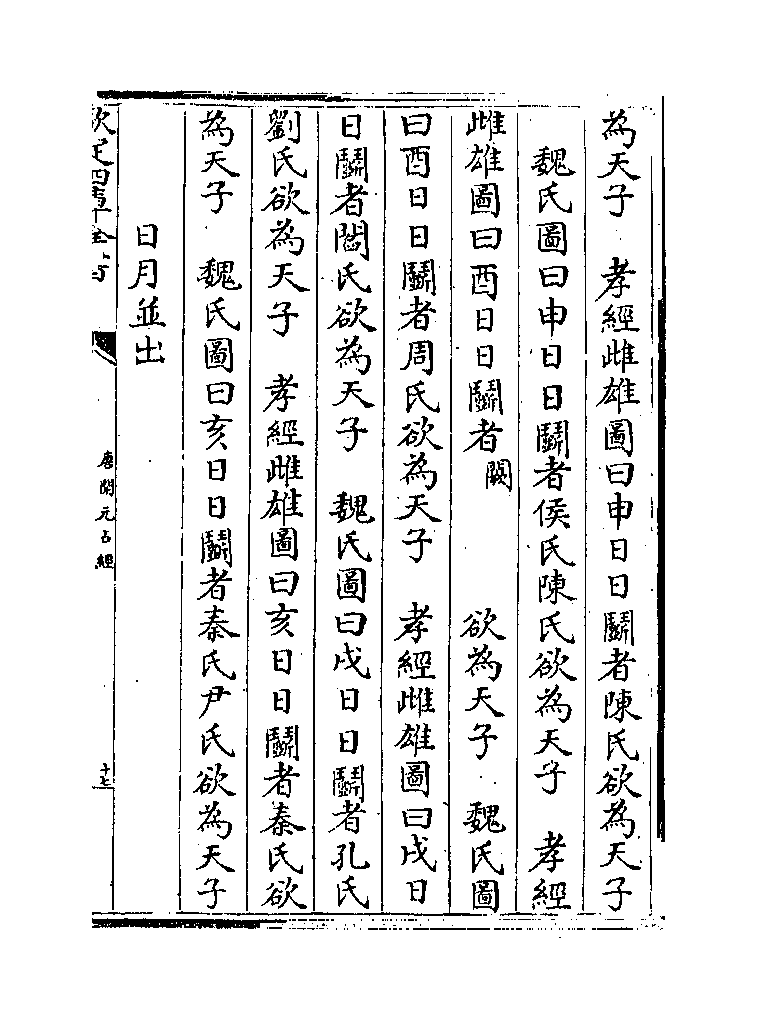 為天子　孝經雌雄圖曰申日日鬭者陳氏欲為天子
魏氏圖曰申日日鬭者侯氏陳氏欲為天子　孝經
雌雄圖曰酉日日鬭者闕　欲為天子　魏氏圖
曰酉日日鬭者周氏欲為天子　孝經雌雄圖曰戌日
日鬭者閻氏欲為天子　魏氏圖曰戌日日鬭者孔氏
劉氏欲為天子　孝經雌雄圖曰亥日日鬭者秦氏欲
為天子　魏氏圖曰亥日日鬭者秦氏尹氏欲為天子
日月並出
欽定四庫全書
唐開元占經
十七